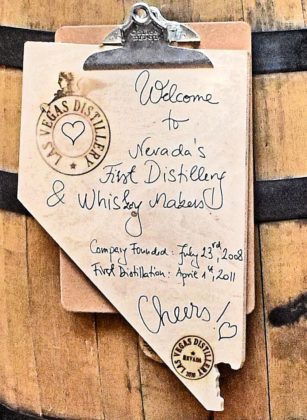 Welcome
to
Nevada's
First Distillery
& Whisky Makers
Company Founded: July 23rd, 2008
First Distillation: April 1st, 2011
Cheers!
LAS VEGAS DISTILLERY
LAS VEGAS DISTILLERY
NEVADA